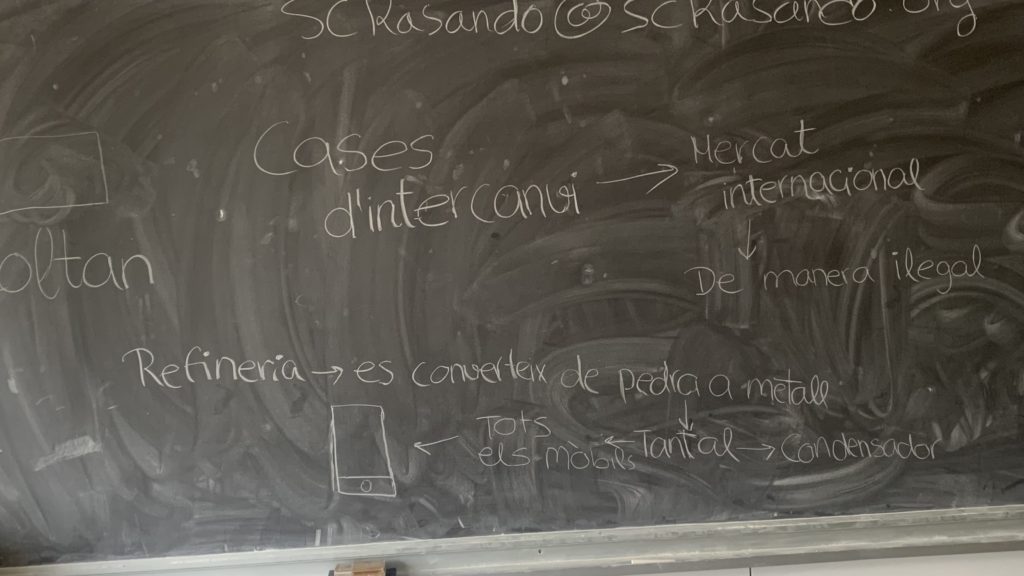 sckasando@sckasando.org
Cases
d'intercanvi → Mercat
internacional
↓
De manera ilegal
oltan
Refineria → es converteix de pedra a metall
↓
← Tots
els mòbils ← Tantal → Condensador